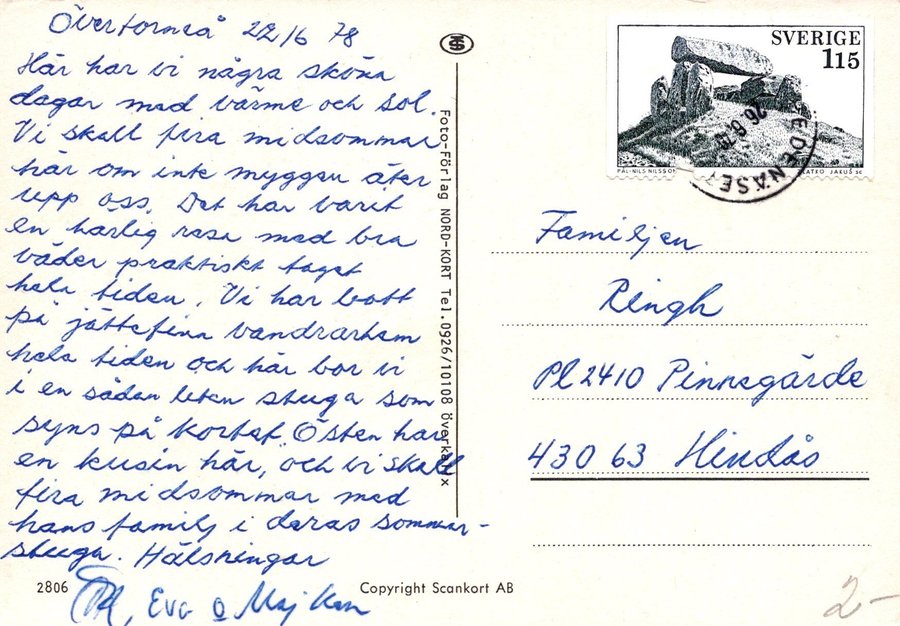 Övertorneå 22/6 78
Här har vi några sköna
dagar med värme och sol.
Vi skall fira midsommar
här om inte myggen äter
upp oss. Det har varit
en härlig resa med bra
väder praktiskt taget
hela tiden. Vi har bott
på jättefina vandrarhem
hela tiden och här bor vi
i en sådan liten stuga som
syns på kortet. Östen har
en kusin här, och vi skall
fira midsommar med
hans familj i deras sommar-
stuga. Hälsningar
Eva o Maj Ken
2806
Copyright Scankort AB
Foto-Förlag NORD-KORT Tel. 0926/10108 Överkalix
SVERIGE
115
PÅL-NILS NILSSON
ZLATKO JAKUS SC
26.6.78
Familjen
Ringh
Pl 2410 Pinnegärde
430 63 Hindås
2-